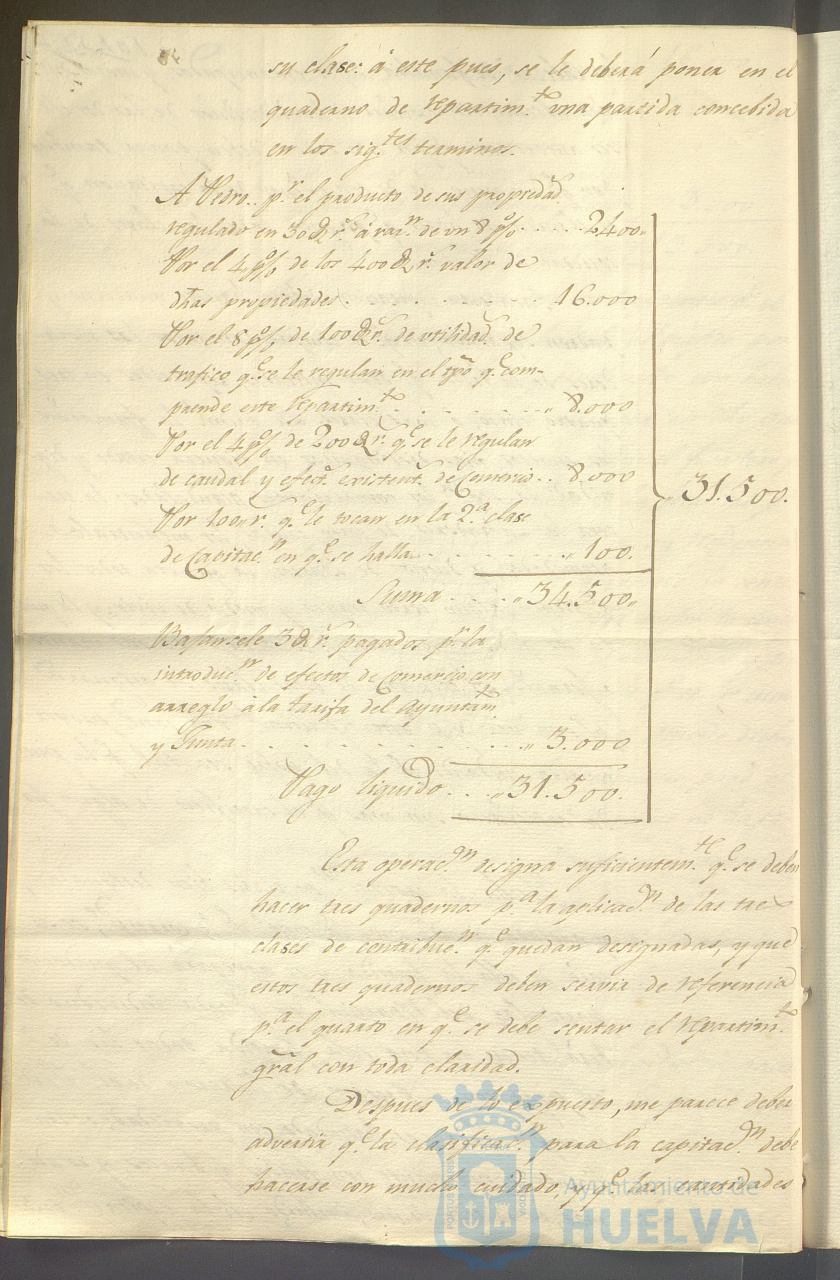 su clase: á este pues, se le deberá poner en el
quaderno de repartim.to una partida concebida
en los sig.tes terminos.
A Pedro.. p.r el producto de sus propiedad.
regulado en 30@ r.s á raz.n de un 8 p%..... 2400.
Por el 4 p% de los 400@ r.s valor de
dhas propiedades........ 16.000
Por el 8 p% de 100@ r.s de utilidad.s de
trafico q.e se le regulan en el tpõ q.e com-
prende este repartim.to....... 8.000
Por el 4 p% de 200@ r.s q.e se le regulan
de caudal y efect.s existent.s de Comercio.. 8.000
31.500.
Por 100 r.s q.e le tocan en la 2.a clase
de Capitac.n en q.e se halla........ 100.
Suma..... 34.500
Bajansele 3@ r.s pagados p.r la
introduc.n de efectos de Comercio con
arreglo à la tarifa del Ayuntam.to
y Junta......... 3.000
Pago liquido... 31.500.
Esta operac.on designa suficientem.te q.e se deben
hacer tres quadernos p.a la aplicac.on de las tres
clases de contribuc.n q.e quedan designadas, y que
estos tres quadernos deben servir de referencia
p.a el quarto en q.e se debe sentar el repartim.to
grãl con toda claridad.
Despues de lo expuesto, me parece deber
advertir q.e la clasificac.n para la capitac.on debe
hacerse con mucho cuidado, y q.e las cantidades
PORTUS MARIS
Ayuntamiento de
HUELVA